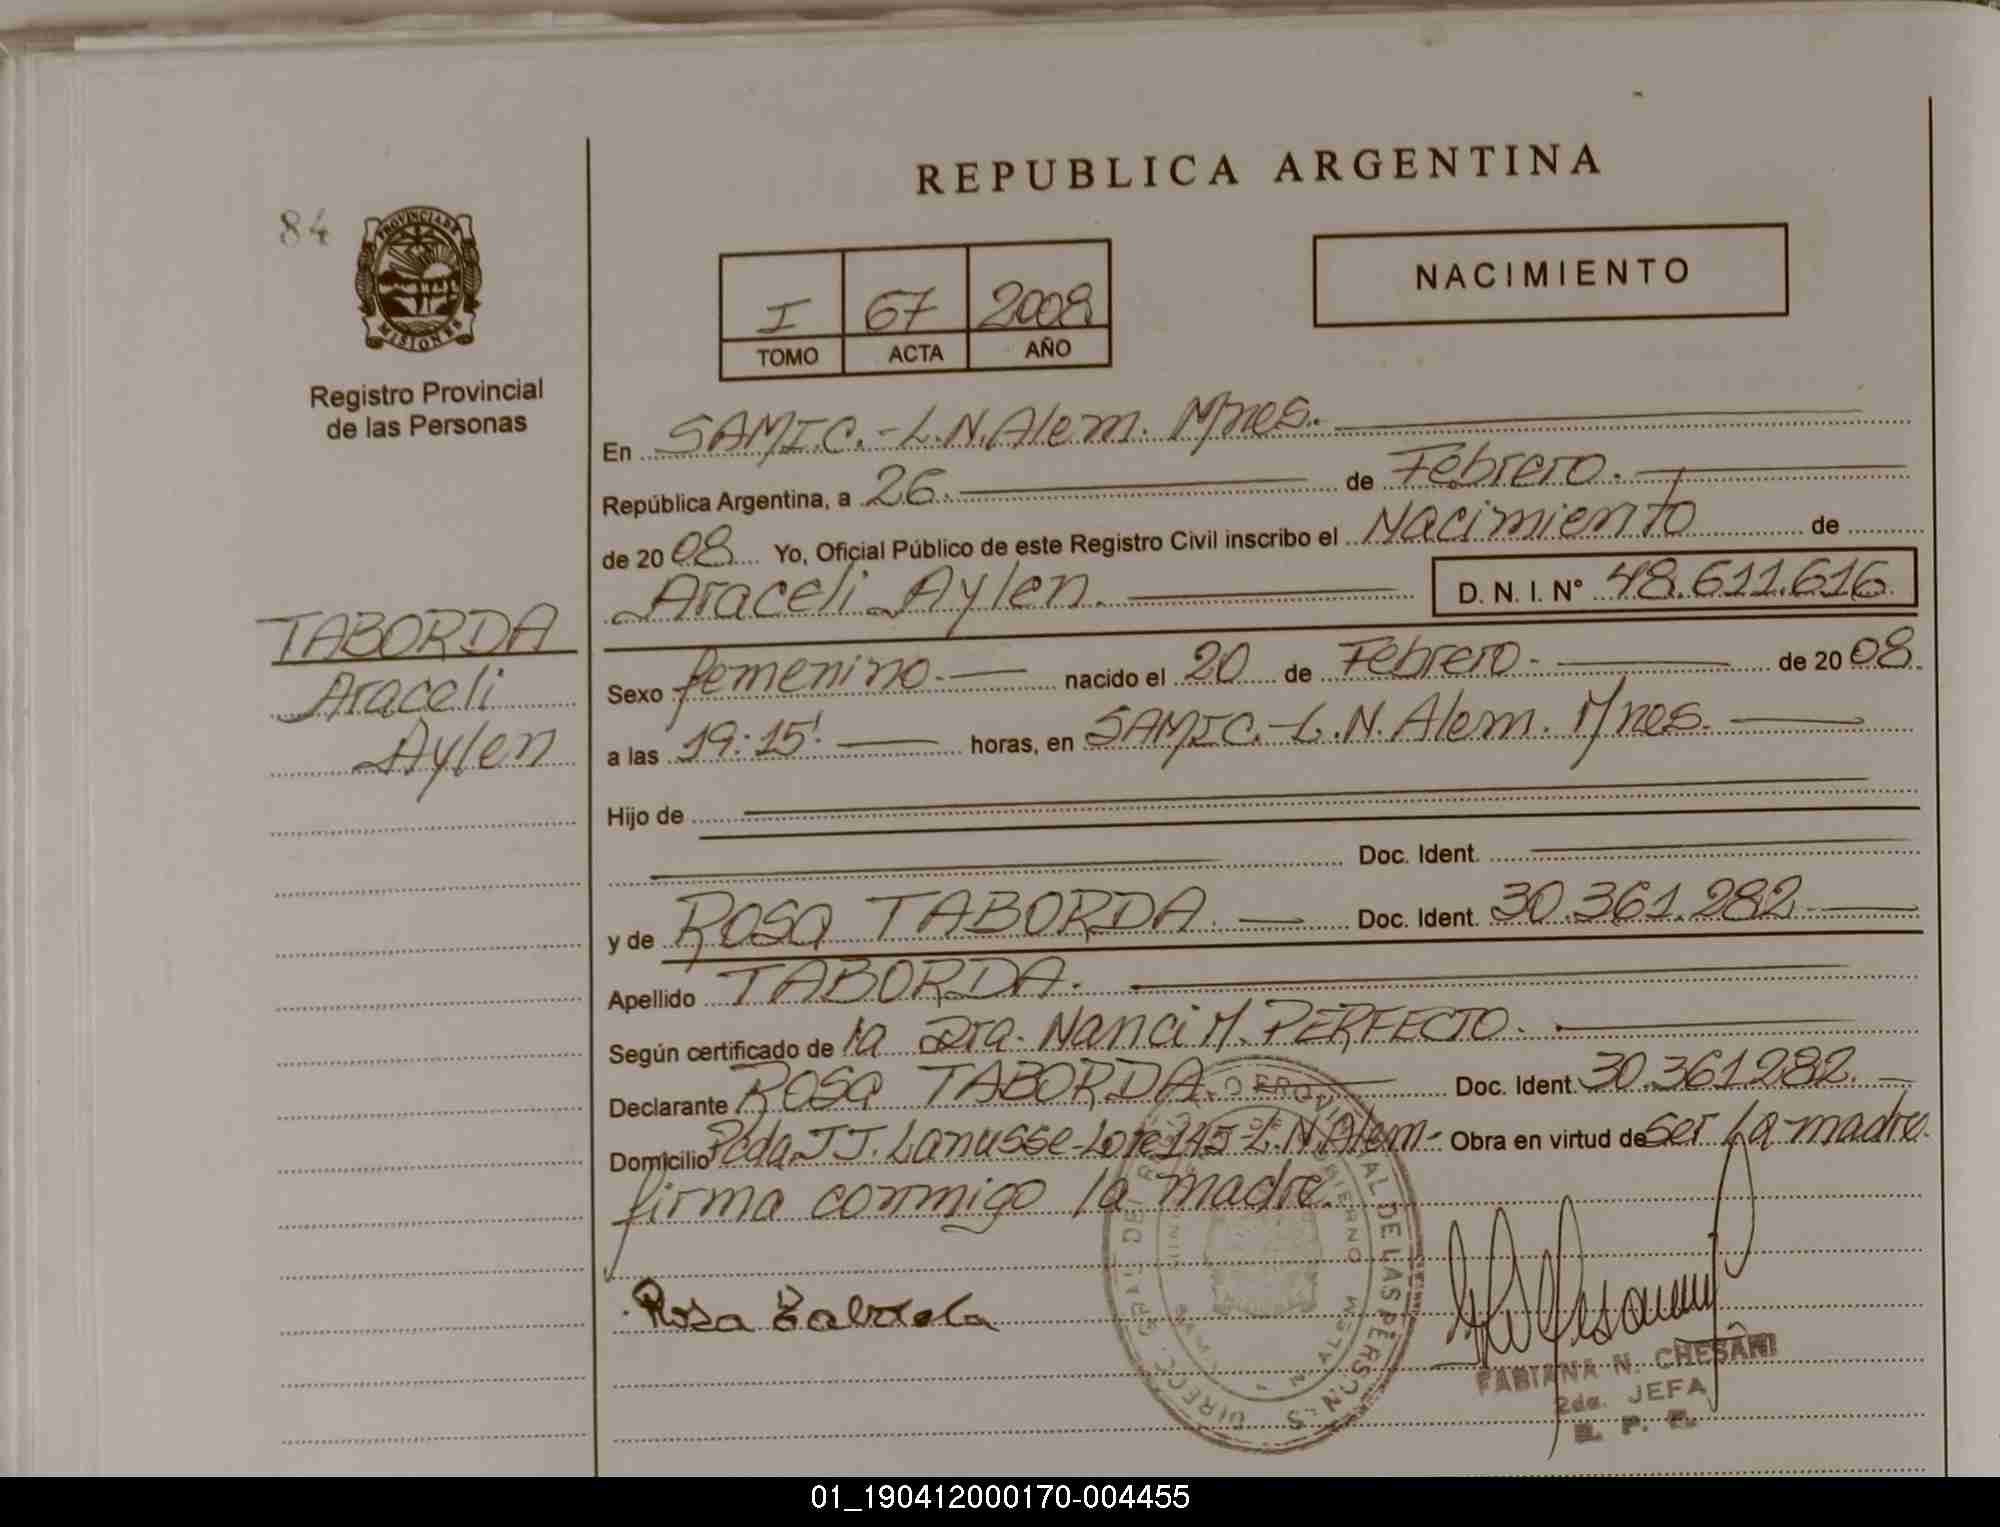 REPUBLICA ARGENTINA
84
PROVINCIA DE
MISIONES
Registro Provincial
de las Personas
I 67 2008
TOMO ACTA AÑO
NACIMIENTO
En SAMIC.-L.N.Alem. Mnes.
República Argentina, a 26. de Febrero.
de 2008 Yo, Oficial Público de este Registro Civil inscribo el Nacimiento de
Araceli Aylen. D. N. I. N° 48.611.616
TABORDA
Araceli
Aylen
Sexo femenino. nacido el 20 de Febrero. de 2008.
a las 19:15'. horas, en SAMIC.-L.N.Alem. Mnes.
Hijo de
Doc. Ident.
y de ROSA TABORDA. Doc. Ident. 30.361.282
Apellido TABORDA.
Según certificado de la Dra. Nanci M. PERFECTO.
Declarante ROSA TABORDA. Doc. Ident. 30.361282.
Domicilio Pcda. JJ. Lanusse-Lote 145-L.N.Alem- Obra en virtud de ser la madre.
firma conmigo la madre.
Rosa
FABIANA N. CHESANI
2da. JEFA
R. P. P.
01_190412000170-004455